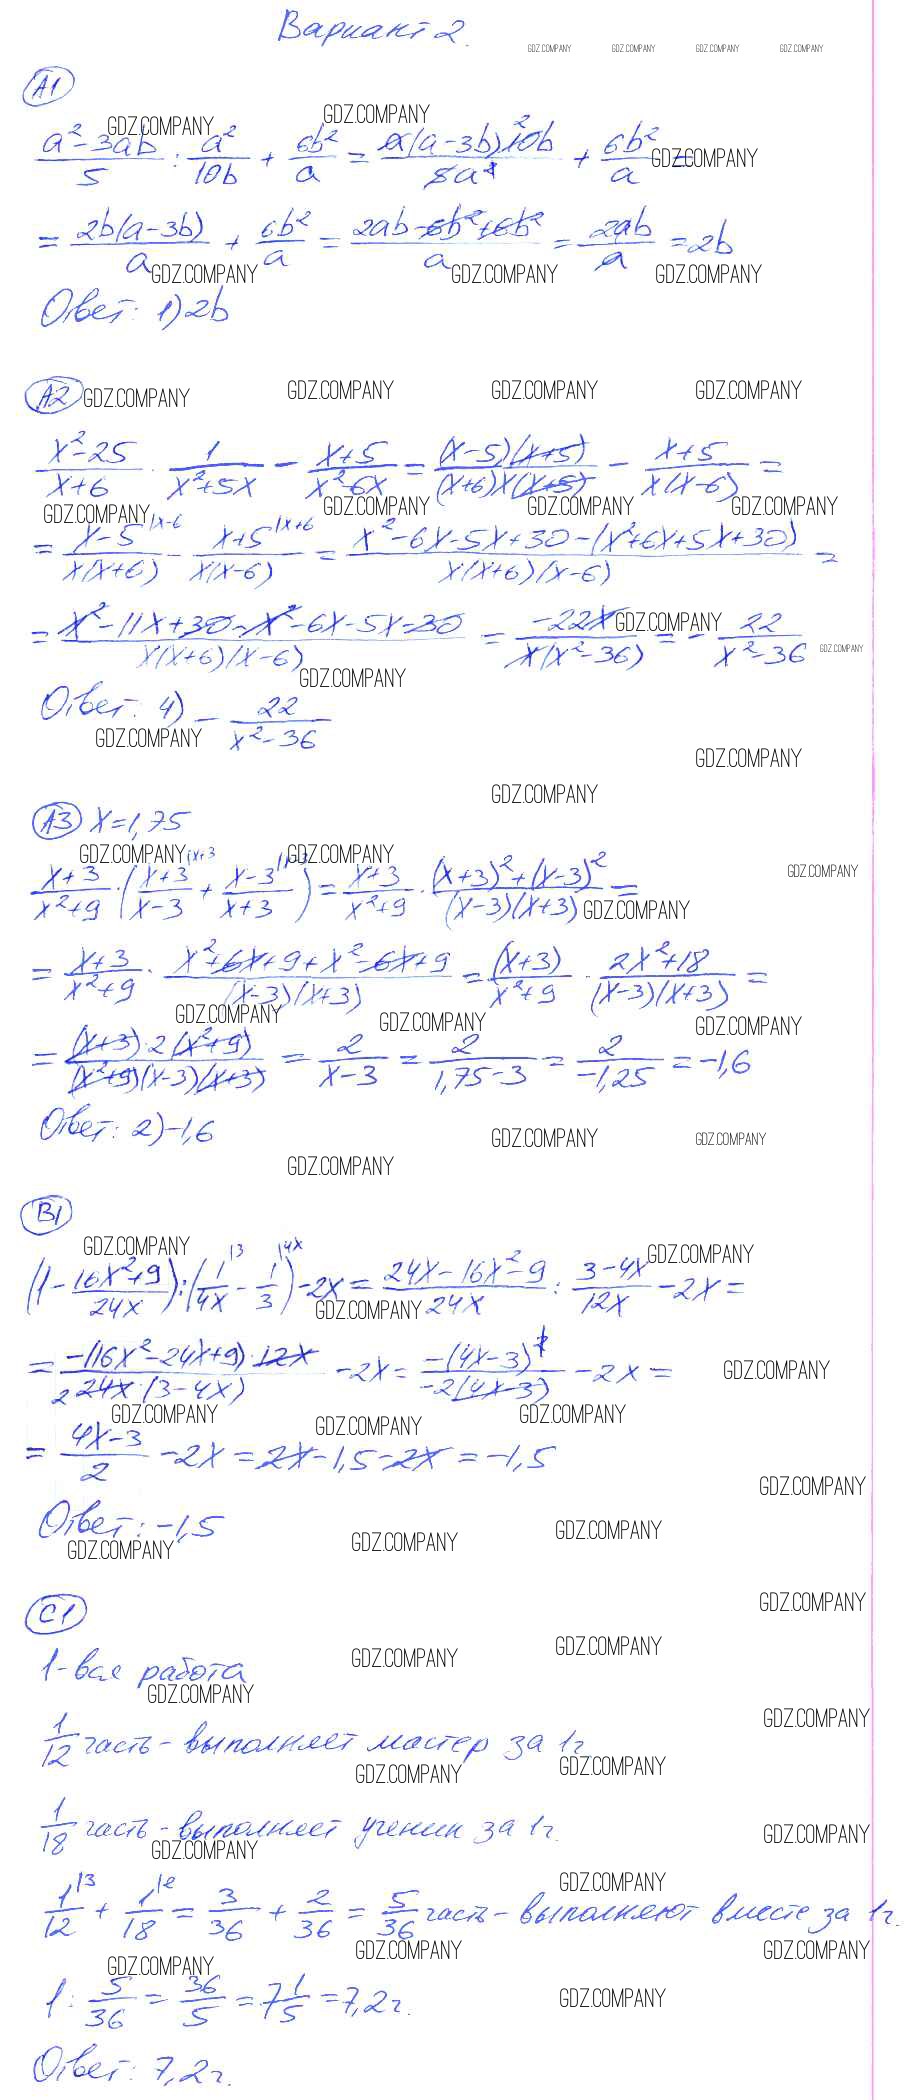 Вариант 2.
GDZ.COMPANY GDZ.COMPANY GDZ.COMPANY GDZ.COMPANY
А1
GDZ.COMPANY GDZ.COMPANY
(a²-3ab)/5 : a²/10b + 6b²/a = a(a-3b)·10b/5a² + 6b²/a =
GDZ.COMPANY
= 2b(a-3b)/a + 6b²/a = (2ab-6b²+6b²)/a = 2ab/a = 2b
GDZ.COMPANY GDZ.COMPANY GDZ.COMPANY
Ответ: 1) 2b
А2 GDZ.COMPANY GDZ.COMPANY GDZ.COMPANY GDZ.COMPANY
(x²-25)/(x+6) · 1/(x²+5x) - (x+5)/(x²-6x) = (x-5)(x+5)/(x+6)x(x+5) - (x+5)/x(x-6) =
GDZ.COMPANY GDZ.COMPANY GDZ.COMPANY GDZ.COMPANY
= (x-5)|x-6/x(x+6) - (x+5)|x+6/x(x-6) = (x²-6x-5x+30-(x²+6x+5x+30))/x(x+6)(x-6) =
= (x²-11x+30-x²-6x-5x-30)/x(x+6)(x-6) = -22x/x(x²-36) = - 22/(x²-36)
GDZ.COMPANY GDZ.COMPANY
GDZ.COMPANY
Ответ: 4) - 22/(x²-36)
GDZ.COMPANY GDZ.COMPANY
GDZ.COMPANY
А3 x=1,75
GDZ.COMPANY GDZ.COMPANY GDZ.COMPANY
(x+3)/(x²+9) · ((x+3)|x+3/(x-3) + (x-3)|x-3/(x+3)) = (x+3)/(x²+9) · ((x+3)²+(x-3)²)/(x-3)(x+3) =
GDZ.COMPANY
= (x+3)/(x²+9) · (x²+6x+9+x²-6x+9)/(x-3)(x+3) = (x+3)/(x²+9) · (2x²+18)/(x-3)(x+3) =
GDZ.COMPANY GDZ.COMPANY GDZ.COMPANY
= (x+3)·2(x²+9)/(x²+9)(x-3)(x+3) = 2/(x-3) = 2/(1,75-3) = 2/-1,25 = -1,6
Ответ: 2) -1,6
GDZ.COMPANY GDZ.COMPANY
GDZ.COMPANY
В1
GDZ.COMPANY GDZ.COMPANY
(1 - (16x²+9)/24x) : (1|3/4x - 1|4x/3) - 2x = (24x-16x²-9)/24x : (3-4x)/12x - 2x =
GDZ.COMPANY
= -(16x²-24x+9)·12x/2 24x·(3-4x) - 2x = -(4x-3)²/-2(4x-3) - 2x =
GDZ.COMPANY
GDZ.COMPANY GDZ.COMPANY GDZ.COMPANY
= (4x-3)/2 - 2x = 2x-1,5-2x = -1,5
GDZ.COMPANY
Ответ: -1,5
GDZ.COMPANY GDZ.COMPANY GDZ.COMPANY
С1
GDZ.COMPANY
1-вся работа
GDZ.COMPANY GDZ.COMPANY
GDZ.COMPANY
GDZ.COMPANY
1/12 часть - выполняет мастер за 1ч
GDZ.COMPANY GDZ.COMPANY
1/18 часть - выполняет ученик за 1ч.
GDZ.COMPANY GDZ.COMPANY
GDZ.COMPANY
1|3/12 + 1|2/18 = 3/36 + 2/36 = 5/36 часть - выполняют вместе за 1ч.
GDZ.COMPANY GDZ.COMPANY GDZ.COMPANY
1 : 5/36 = 36/5 = 7 1/5 = 7,2ч.
GDZ.COMPANY
Ответ: 7,2ч.